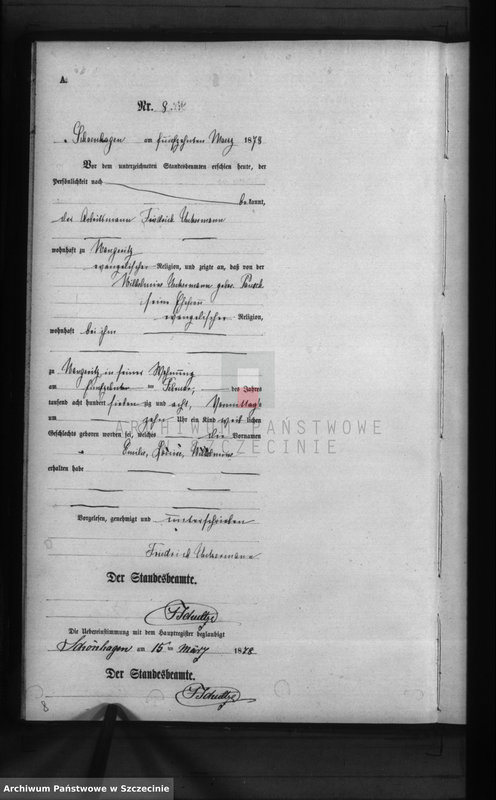 A.
Nr. 8.
Schoenhagen am fünfzehnten Maerz 1878
Vor dem unterzeichneten Standesbeamten erschien heute, der
Persönlichkeit nach
bekannt,
der Arbeitsmann Friedrich Unkermann
wohnhaft zu
evangelischer Religion, und zeigte an, daß von der
Wilhelmine Unkermann gebor.
seine Ehefrau
evangelischer Religion,
wohnhaft bei ihm
zu in seiner Wohnung
am des Jahres
tausend acht hundert siebenzig und acht, Vormittags
um zehn Uhr ein Kind weiblichen
Geschlechts geboren worden sei, welches die Vornamen
Emilie, Wilhelmine
erhalten habe
Vorgelesen, genehmigt und unterschrieben
Friedrich Unkermann
Der Standesbeamte.
Schultze
Die Uebereinstimmung mit dem Hauptregister beglaubigt
Schönhagen am 15ten März 1878
Der Standesbeamte.
Schultze
8
ARCHIWUM PAŃSTWOWE
W SZCZECINIE
Archiwum Państwowe w Szczecinie